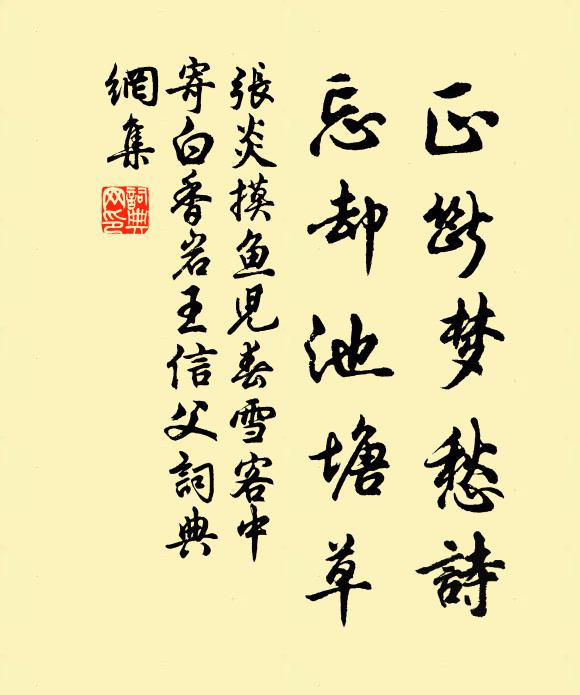 正斷梦愁詩
忘却池塘草
張炎摸鱼児春雪客中
寄白香岩王信父詞典
網集
詞典
网印